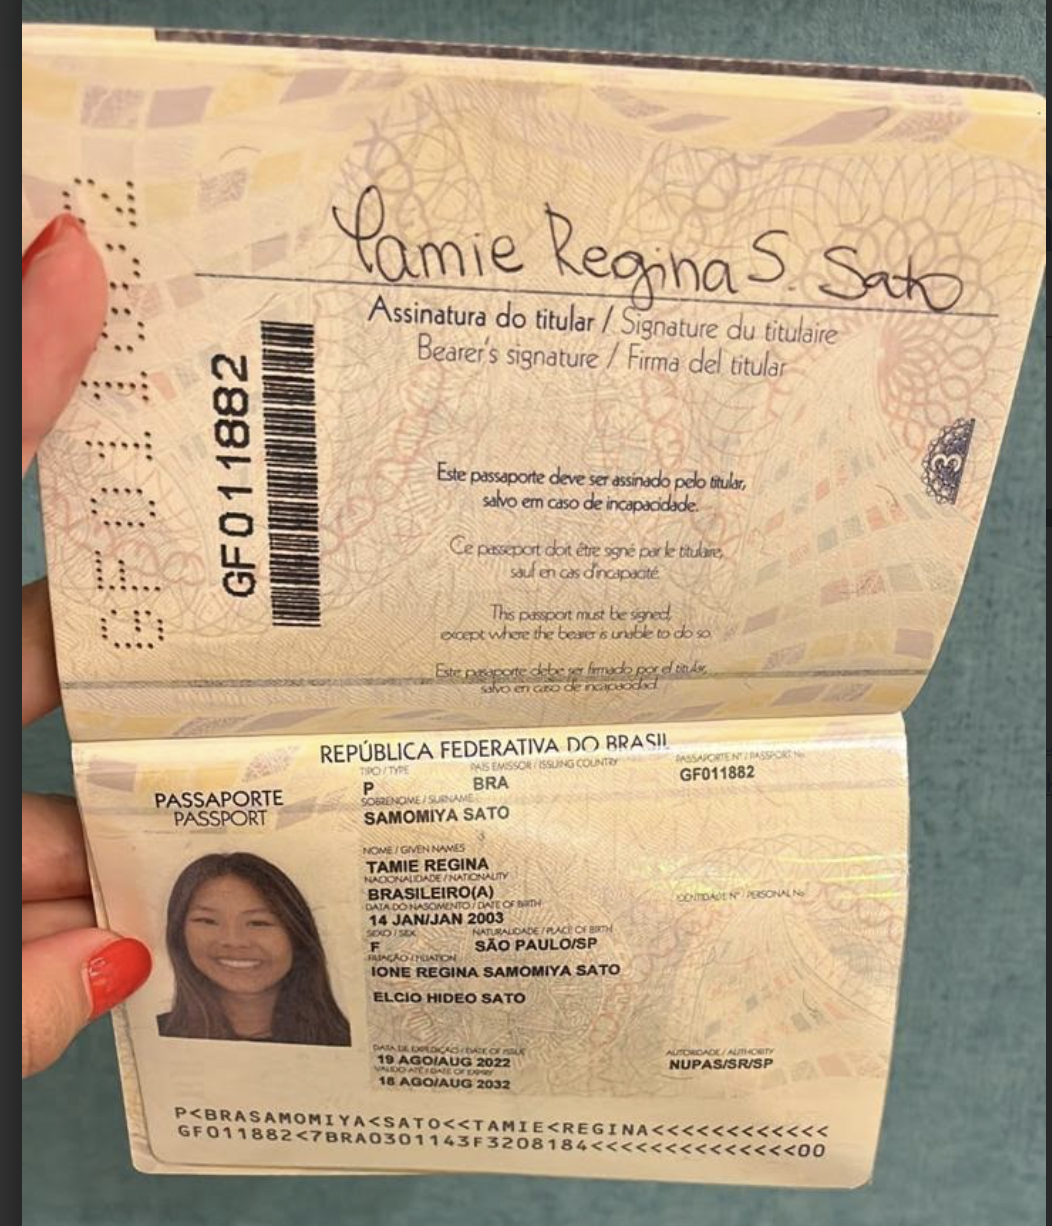 Tamie Regina S. Sato
Assinatura do titular / Signature du titulaire
Bearer's signature / Firma del titular
GF011882
GF011882
3
Este passaporte deve ser assinado pelo titular,
salvo em caso de incapacidade.
Ce passeport doit être signé par le titulaire,
sauf en cas d'incapacité.
This passport must be signed,
except where the bearer is unable to do so.
Este pasaporte debe ser firmado por el titular,
salvo en caso de incapacidad.
REPÚBLICA FEDERATIVA DO BRASIL
PASSAPORTE
PASSPORT
TIPO / TYPE PAÍS EMISSOR / ISSUING COUNTRY PASSAPORTE Nº / PASSPORT No.
P BRA GF011882
SOBRENOME / SURNAME
SAMOMIYA SATO
NOME / GIVEN NAMES
TAMIE REGINA
NACIONALIDADE / NATIONALITY
BRASILEIRO(A)
IDENTIDADE Nº / PERSONAL No.
DATA DO NASCIMENTO / DATE OF BIRTH
14 JAN/JAN 2003
SEXO / SEX NATURALIDADE / PLACE OF BIRTH
F SÃO PAULO/SP
FILIAÇÃO / FILIATION
IONE REGINA SAMOMIYA SATO
ELCIO HIDEO SATO
DATA DE EXPEDIÇÃO / DATE OF ISSUE AUTORIDADE / AUTHORITY
19 AGO/AUG 2022 NUPAS/SR/SP
VÁLIDO ATÉ / DATE OF EXPIRY
18 AGO/AUG 2032
P<BRASAMOMIYA<SATO<<TAMIE<REGINA<<<<<<<<<<<<
GF011882<7BRA0301143F3208184<<<<<<<<<<<<<<00